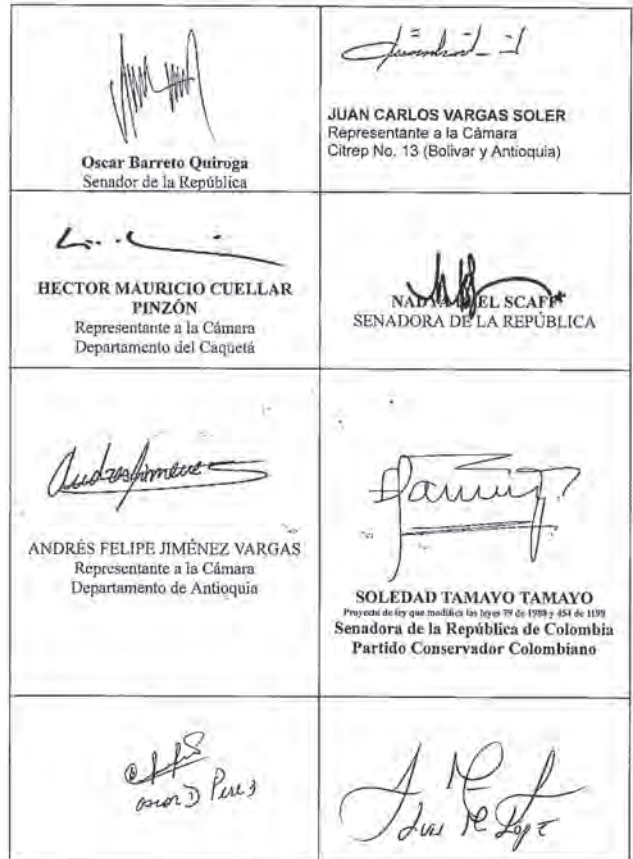 Oscar Barreto Quiroga
Senador de la República
JUAN CARLOS VARGAS SOLER
Representante a la Cámara
Citrep No. 13 (Bolivar y Antioquia)
HECTOR MAURICIO CUELLAR
PINZÓN
Representante a la Cámara
Departamento del Caquetá
SCAFF
SENADORA DE LA REPÚBLICA
Andres Jimenez
ANDRÉS FELIPE JIMÉNEZ VARGAS
Representante a la Cámara
Departamento de Antioquia
SOLEDAD TAMAYO TAMAYO
Proyecto de ley que modifica las leyes 79 de 1988 y 454 de 1198
Senadora de la República de Colombia
Partido Conservador Colombiano
oscar D Perez